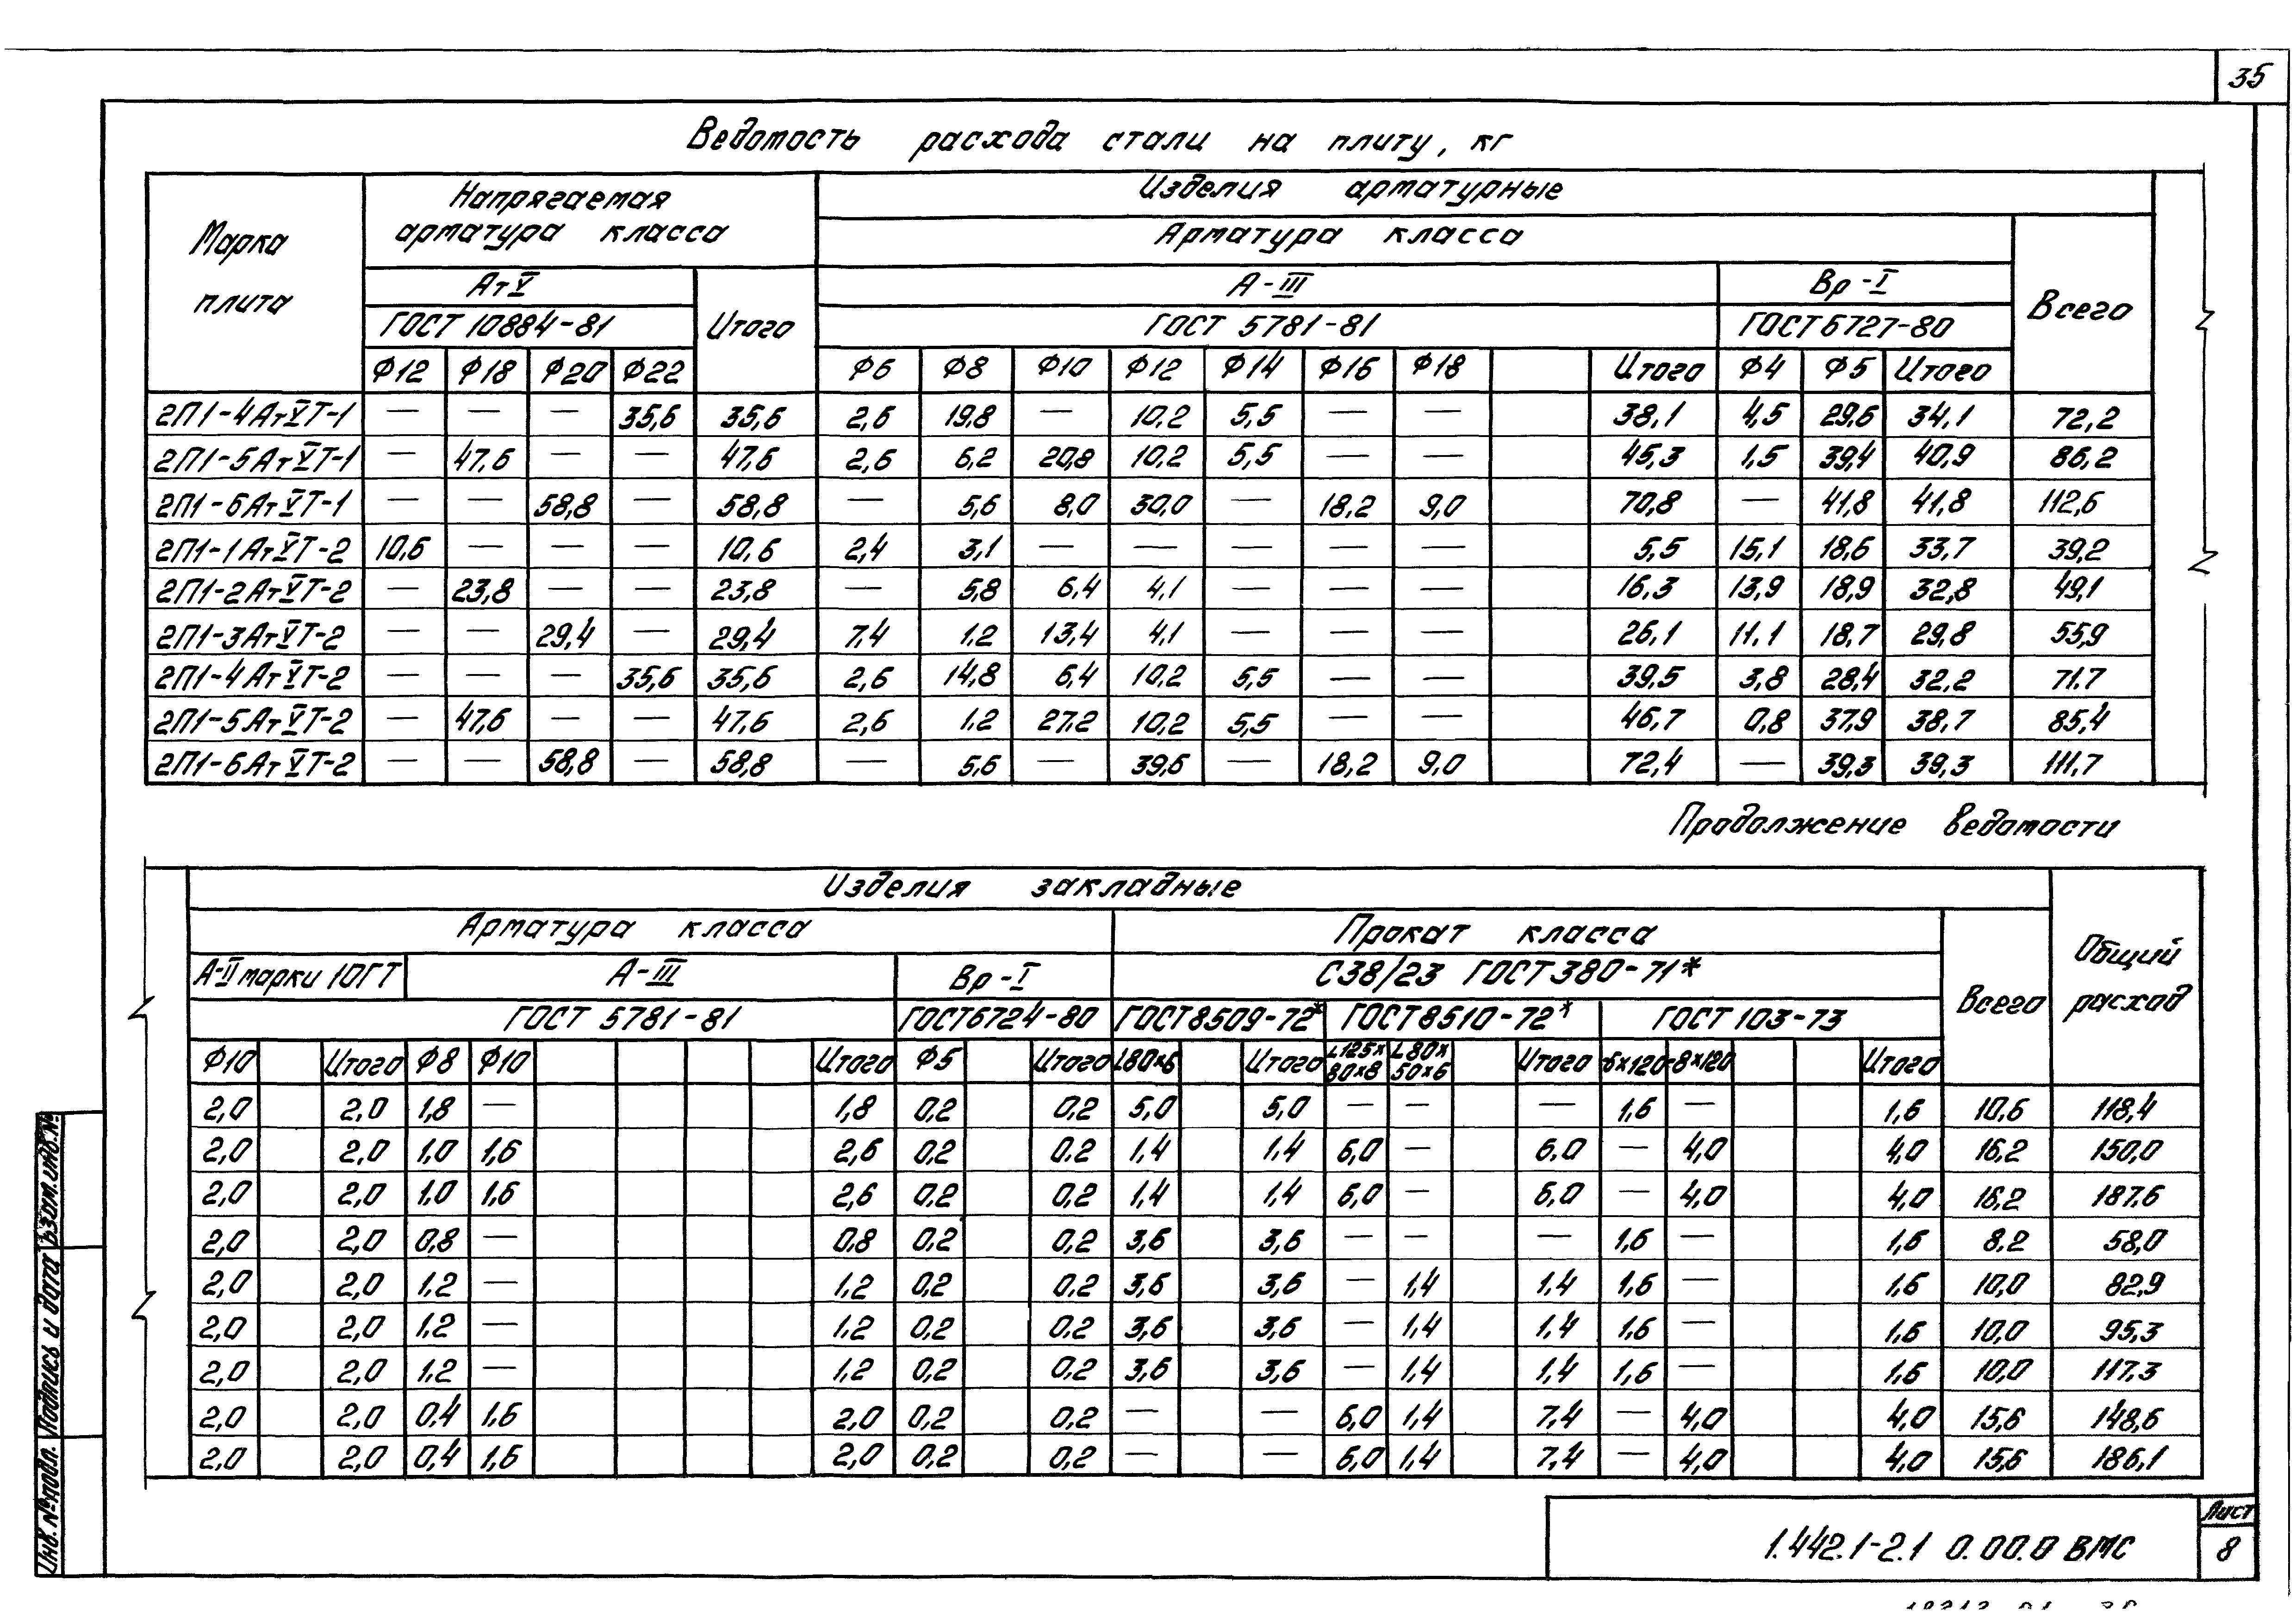 35
Ведомость расхода стали на плиту, кг
Марка плита
Напрягаемая арматура класса
Изделия арматурные
Арматура класса
Всего
АтV
Итого
А-III
Вр-I
ГОСТ 10884-81
ГОСТ 5781-81
ГОСТ 6727-80
Ф12 Ф18 Ф20 Ф22 Ф6 Ф8 Ф10 Ф12 Ф14 Ф16 Ф18 Итого Ф4 Ф5 Итого
2П1-4АтVТ-1 — — — 35,6 35,6 2,6 19,8 — 10,2 5,5 — — 38,1 4,5 29,6 34,1 72,2
2П1-5АтVТ-1 — 47,6 — — 47,6 2,6 6,2 20,8 10,2 5,5 — — 45,3 1,5 39,4 40,9 86,2
2П1-6АтVТ-1 — — 58,8 — 58,8 — 5,6 8,0 30,0 — 18,2 9,0 70,8 — 41,8 41,8 112,6
2П1-1АтVТ-2 10,6 — — — 10,6 2,4 3,1 — — — — — 5,5 15,1 18,6 33,7 39,2
2П1-2АтVТ-2 — 23,8 — — 23,8 — 5,8 6,4 4,1 — — — 16,3 13,9 18,9 32,8 49,1
2П1-3АтVТ-2 — — 29,4 — 29,4 7,4 1,2 13,4 4,1 — — — 26,1 11,1 18,7 29,8 55,9
2П1-4АтVТ-2 — — — 35,6 35,6 2,6 14,8 6,4 10,2 5,5 — — 39,5 3,8 28,4 32,2 71,7
2П1-5АтVТ-2 — 47,6 — — 47,6 2,6 1,2 27,2 10,2 5,5 — — 46,7 0,8 37,9 38,7 85,4
2П1-6АтVТ-2 — — 58,8 — 58,8 — 5,6 — 39,6 — 18,2 9,0 72,4 — 39,3 39,3 111,7
Продолжение ведомости
Изделия закладные
Общий расход
Арматура класса
Прокат класса
Всего
А-II марки 10ГТ
А-III
Вр-I
С38/23 ГОСТ 380-71*
ГОСТ 5781-81
ГОСТ 6724-80
ГОСТ 8509-72*
ГОСТ 8510-72*
ГОСТ 103-73
Ф10 Итого Ф8 Ф10 Итого Ф5 Итого L80×6 Итого L125×80×8 L80×50×6 Итого -6×120 -8×120 Итого
2,0 2,0 1,8 — 1,8 0,2 0,2 5,0 5,0 — — — 1,6 — 1,6 10,6 118,4
2,0 2,0 1,0 1,6 2,6 0,2 0,2 1,4 1,4 6,0 — 6,0 — 4,0 4,0 16,2 150,0
2,0 2,0 1,0 1,6 2,6 0,2 0,2 1,4 1,4 6,0 — 6,0 — 4,0 4,0 16,2 187,6
2,0 2,0 0,8 — 0,8 0,2 0,2 3,6 3,6 — — — 1,6 — 1,6 8,2 58,0
2,0 2,0 1,2 — 1,2 0,2 0,2 3,6 3,6 — 1,4 1,4 1,6 — 1,6 10,0 82,9
2,0 2,0 1,2 — 1,2 0,2 0,2 3,6 3,6 — 1,4 1,4 1,6 — 1,6 10,0 95,3
2,0 2,0 1,2 — 1,2 0,2 0,2 3,6 3,6 — 1,4 1,4 1,6 — 1,6 10,0 117,3
2,0 2,0 0,4 1,6 2,0 0,2 0,2 — — 6,0 1,4 7,4 — 4,0 4,0 15,6 148,6
2,0 2,0 0,4 1,6 2,0 0,2 0,2 — — 6,0 1,4 7,4 — 4,0 4,0 15,6 186,1
Инв.№подл. Подпись и дата Взам.инв.№
1.442.1-2.1 0.00.0 ВМС
Лист
8